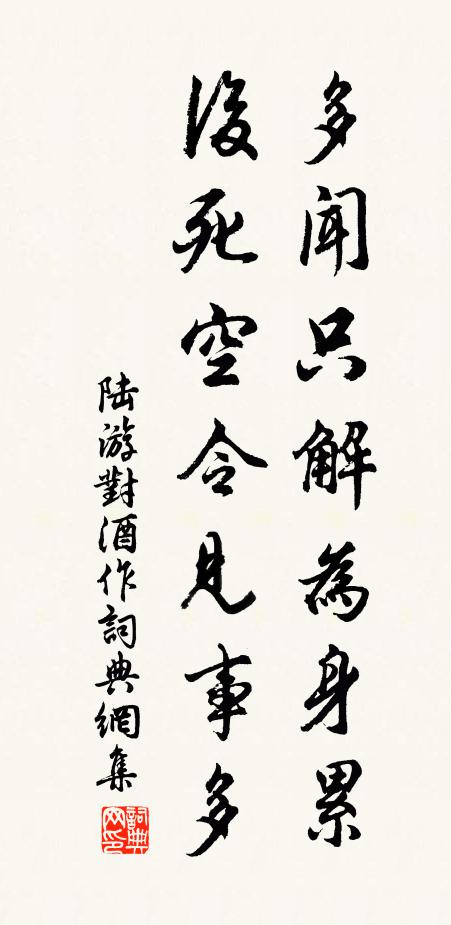 多聞只解為身累
後死空令見事多
陸游對酒作詞典網集
詞典網印